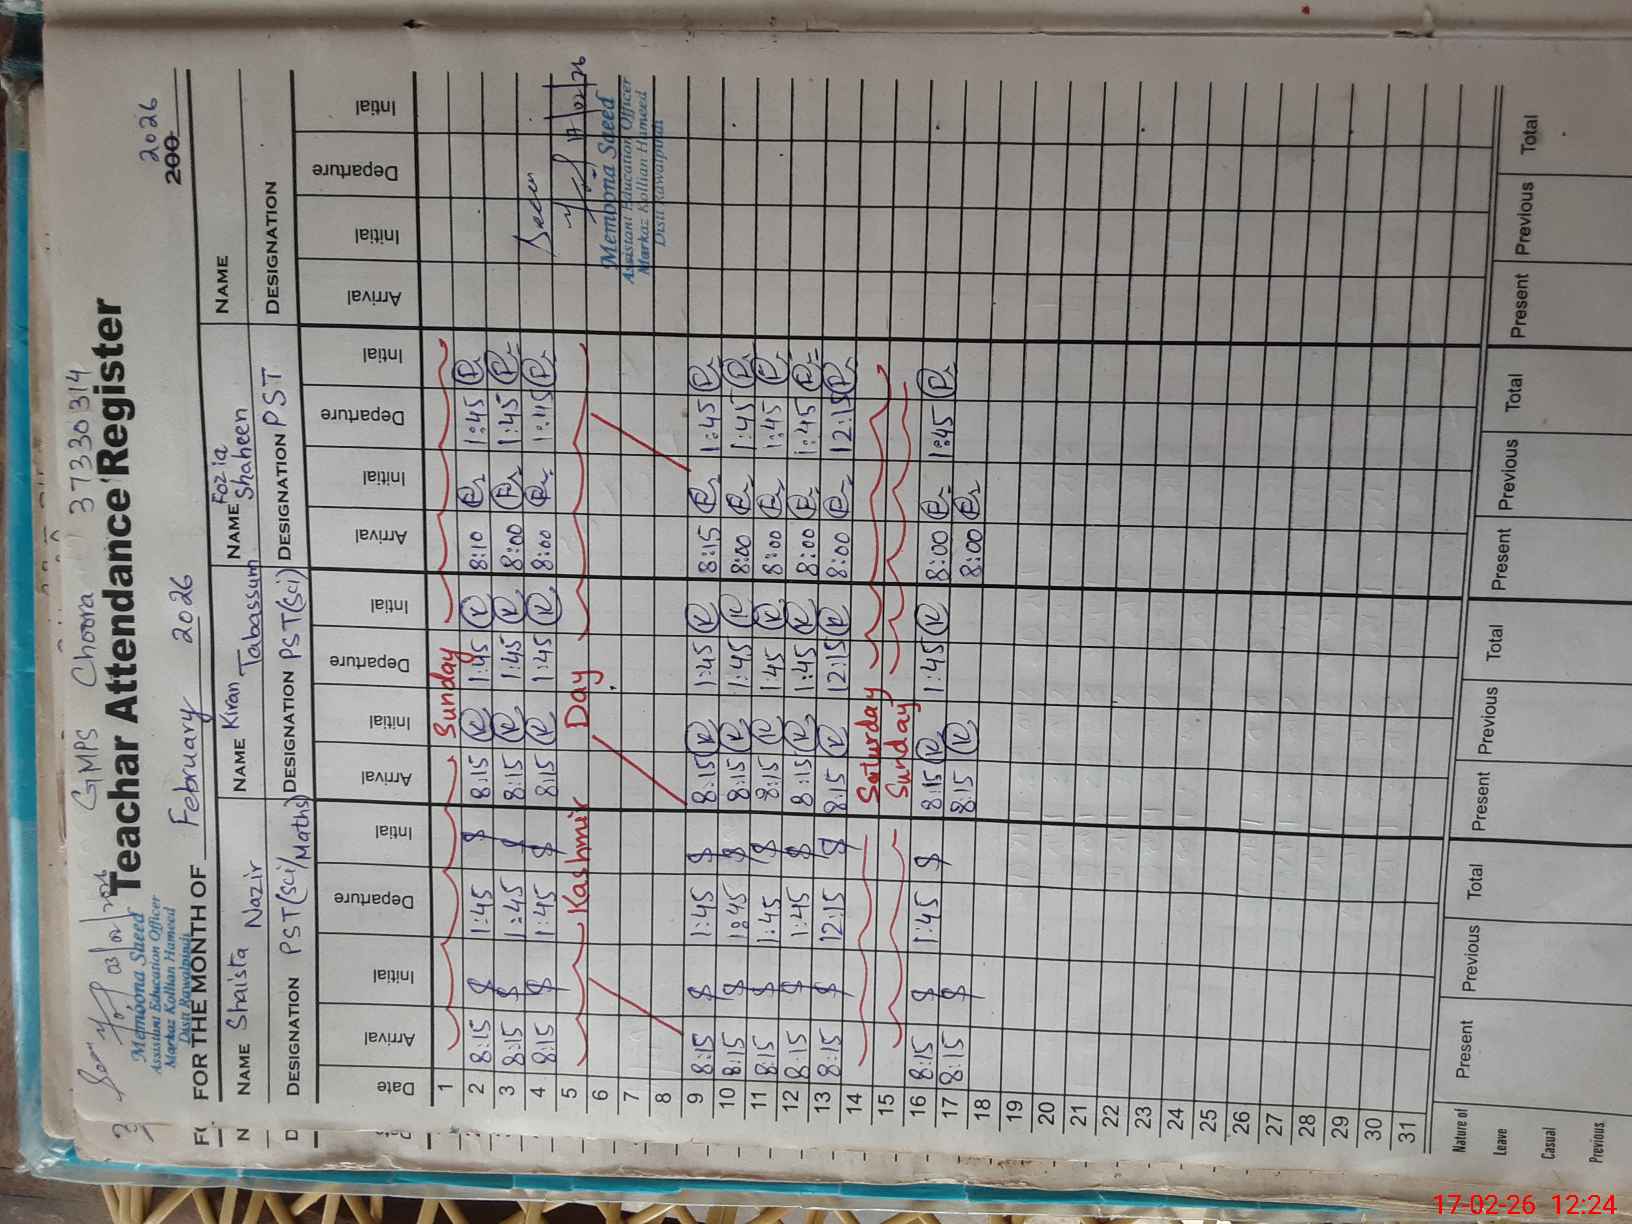 GMPS Choora 37330314
Teachar Attendance Register
03/02/2026
Memoona Saeed
Assistant Education Officer
Markaz Kollian Hameed
Distt Rawalpindi
FOR THE MONTH OF February 2026 200 2026
NAME Shaista Nazir NAME Kiran Tabassum NAME Fozia Shaheen NAME
DESIGNATION PST(Sci/Maths) DESIGNATION PST(Sci) DESIGNATION PST DESIGNATION
Date Arrival Initial Departure Initial Arrival Initial Departure Initial Arrival Initial Departure Initial Arrival Initial Departure Initial
1 Sunday
2 8:15 1:45 8:15 K 1:45 K 8:10 1:45
3 8:15 1:45 8:15 K 1:45 K 8:00 1:45
4 8:15 1:45 8:15 K 1:45 K 8:00 1:45
5 Kashmir Day
6
7
8
Seen
17/02/26
Memoona Saeed
Assistant Education Officer
Markaz Kollian Hameed
Distt Rawalpindi
9 8:15 1:45 8:15 K 1:45 K 8:15 1:45
10 8:15 1:45 8:15 K 1:45 K 8:00 1:45
11 8:15 1:45 8:15 K 1:45 K 8:00 1:45
12 8:15 1:45 8:15 K 1:45 K 8:00 1:45
13 8:15 12:15 8:15 K 12:15 K 8:00 12:15
14 Saturday
15 Sunday
16 8:15 1:45 8:15 K 1:45 K 8:00 1:45
17 8:15 8:15 K 8:00
18
19
20
21
22
23
24
25
26
27
28
29
30
31
Nature of Leave Present Previous Total Present Previous Total Present Previous Total Present Previous Total
Casual
Previous
17-02-26 12:24